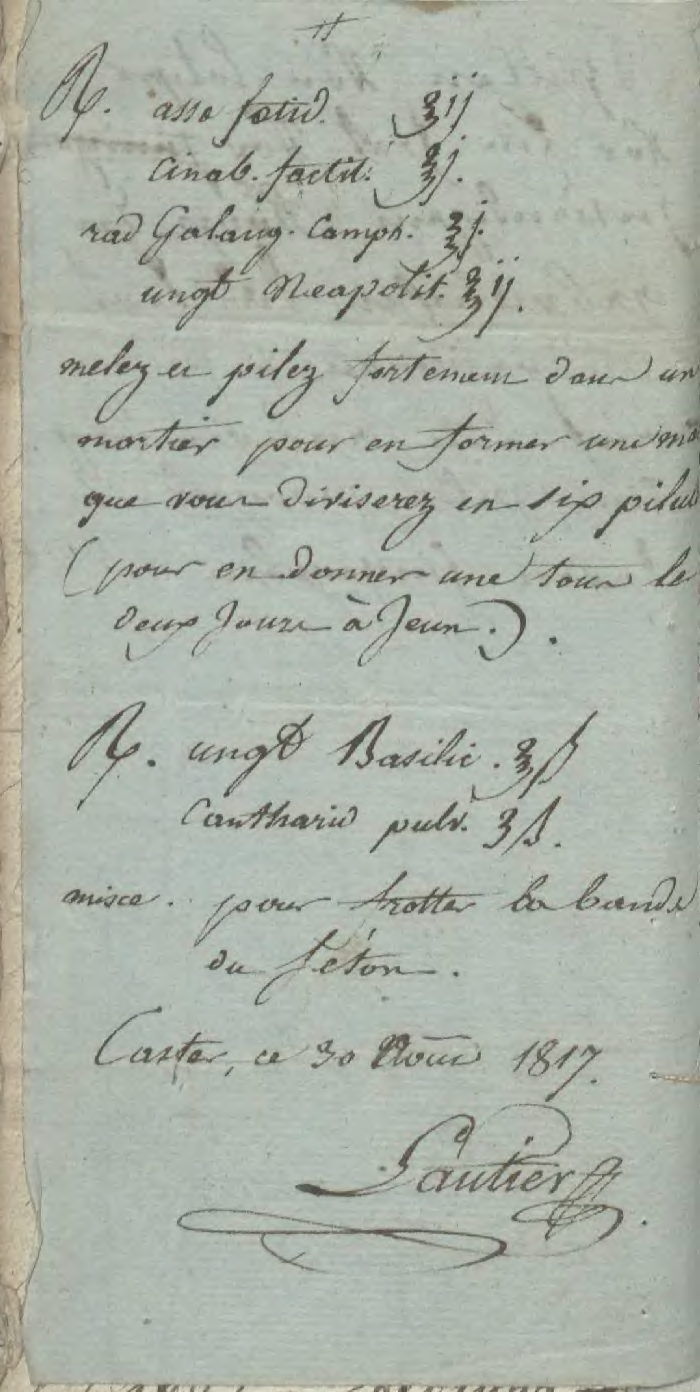 #
℞. assa fœtid. ℥ij
cinab. factit. ℥j.
rad Galang. Camph. ℥j.
ungt Neapolit. ℥ij.
melez et pilez fortement dans un
mortier pour en former une ma
que vous diviserez en six pilul
(pour en donner une tous le
deux Jours à Jeun.).
℞. ungt Basilic. ℥ß
Cantharid pulv. ʒß.
misce. pour frotter la bande
du séton.
Caster, ce 30 Août 1817.
Gautier